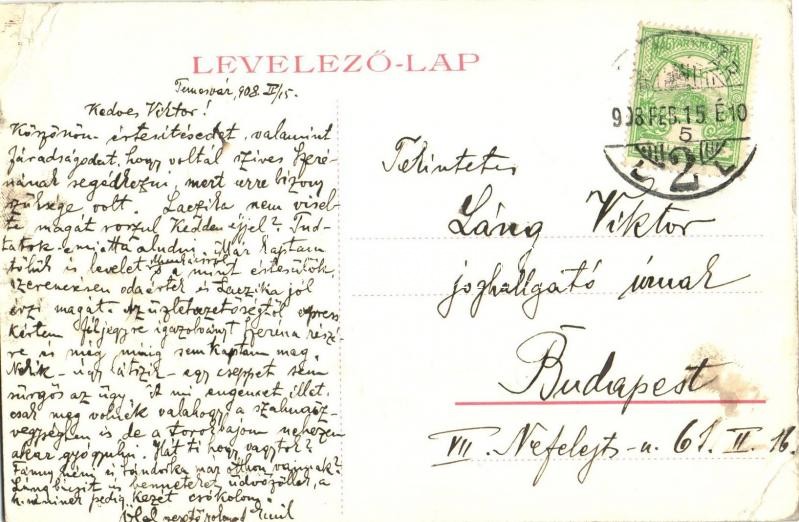 LEVELEZŐ-LAP
Temesvár, 908. II/15.
Kedves Viktor!
Köszönöm értesítésedet, valamint
fáradságodat, hogy voltál szíves Szeré-
nának segédkezni, mert erre bizony
szüksége volt. Laczika nem visel-
te magát rosszul Kedden éjjel? Tud-
tatok-e miatta aludni? Már kaptam
tőlük is levelet s a mint értesülök,
szerencsésen odaértek és Laczika jól
érzi magát. Az üzletvezetőségtől
kértem féljegyre igazolványt Szeréna részé-
re és még máig sem kaptam meg.
Nekik - úgy látszik - egy cseppet sem
sürgős az ügy. A mi engemet illet,
csak meg volnék valahogy a szalmaöz-
vegységben is de a torokbajom nehezen
akar gyógyulni. Hát ti hogy vagytok?
Fanny néni és Sándorka már otthon vannak?
Láng bácsit és benneteket üdvözöllek, a
n. néninek pedig kezét csókolom.
Emil
MAGYAR KIR. POSTA
908 FEB. 15. É10
5
2
Tekintetes
Láng Viktor
joghallgató úrnak
Budapest
VII. Nefelejts-u. 61. II. 16.